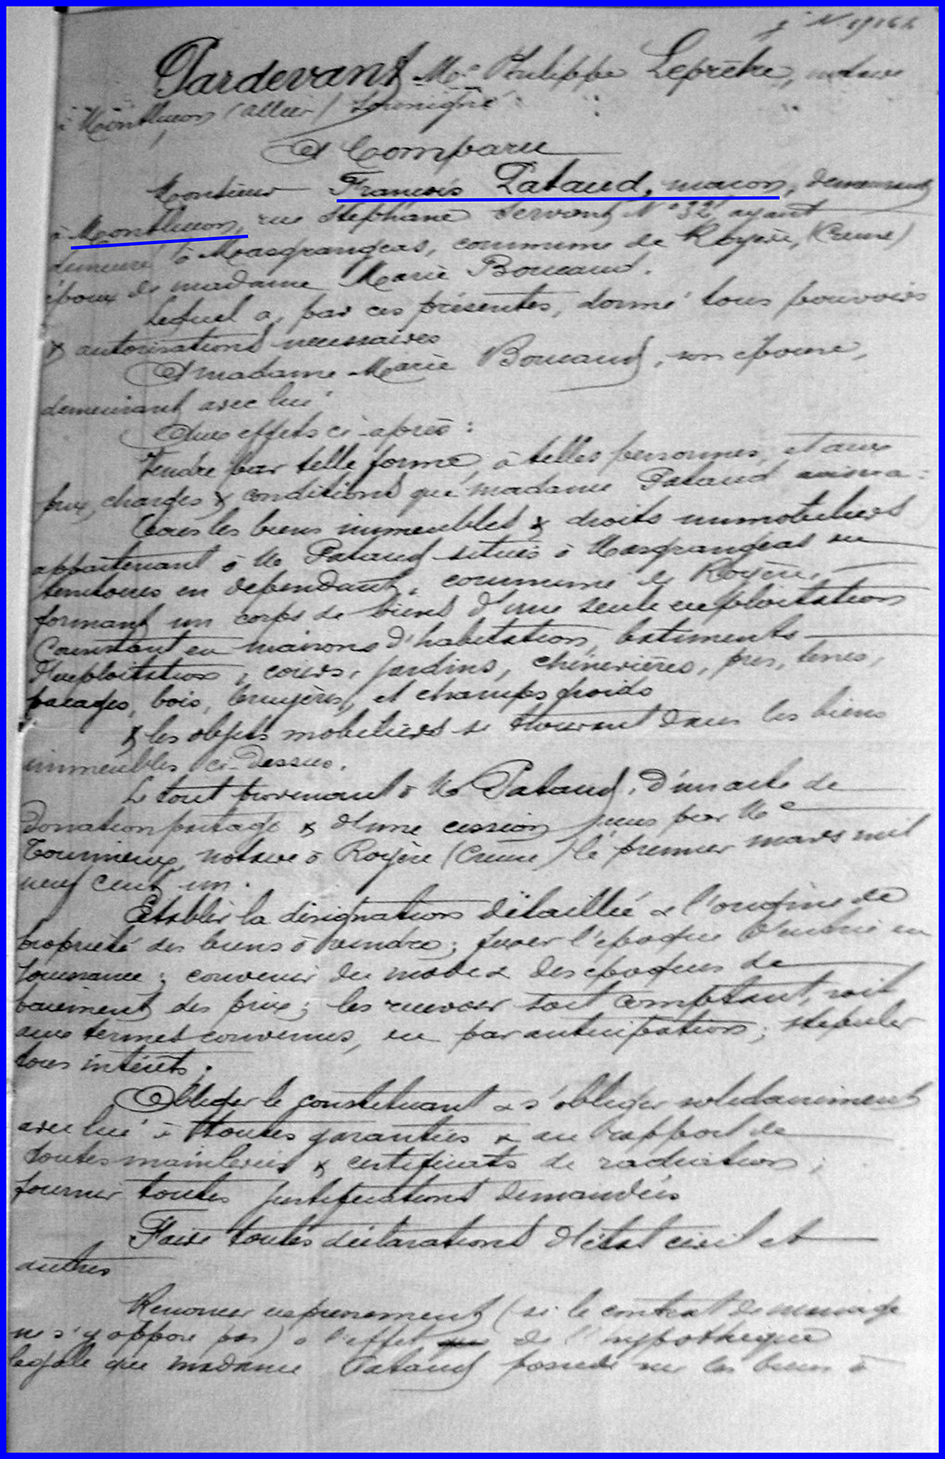 Pardevant Me Philippe Leprêtre, notaire
à Montluçon (Allier) soussigné :
A Comparu
Monsieur François Pataud, maçon, demeurant
à Montluçon, rue Stéphane Servant N° 32, ayant
demeuré à Masgrangeas, commune de Royère, (Creuse)
époux de madame Marie Boucaud.
Lequel a, par ces présentes, donné tous pouvoirs
& autorisations nécessaires
A madame Marie Boucaud, son épouse,
demeurant avec lui
Aux effets ci-après :
Vendre par telle forme, à telles personnes, et aux
prix, charges & conditions que madame Pataud avisera :
Tous les biens immeubles & droits immobiliers
appartenant à M. Pataud situés à Masgrangeas ou
territoires en dépendant, commune de Royère,
formant un corps de biens d'une seule exploitation
Consistant en maisons d'habitation, bâtiments
d'exploitation, cours, jardins, chènevières, prés, terres,
pacages, bois, bruyères, et champs froids
& les objets mobiliers se trouvant dans les biens
immeubles ci-dessus.
Le tout provenant à M. Pataud, d'un acte de
donation partage & d'une cession reçus par Me
Toumieux, notaire à Royère (Creuse) le premier mars mil
neuf cent un.
Etablir la désignation détaillée & l'origine de
propriété des biens à vendre ; fixer l'époque d'entrée en
jouissance ; convenir du mode & des époques de
paiement des prix ; les recevoir soit comptant, soit
aux termes convenus, ou par anticipation ; stipuler
tous intérêts ;
Obliger le constituant & s'obliger solidairement
avec lui à toutes garanties & au rapport de
toutes mainlevées & certificats de radiation ;
fournir toutes justifications demandées
Faire toutes déclarations d'état civil et
autres
Renoncer expressément (si le contrat de mariage
ne s'y oppose pas) à l'effet de l'hypothèque
légale que madame Pataud possède sur les biens à